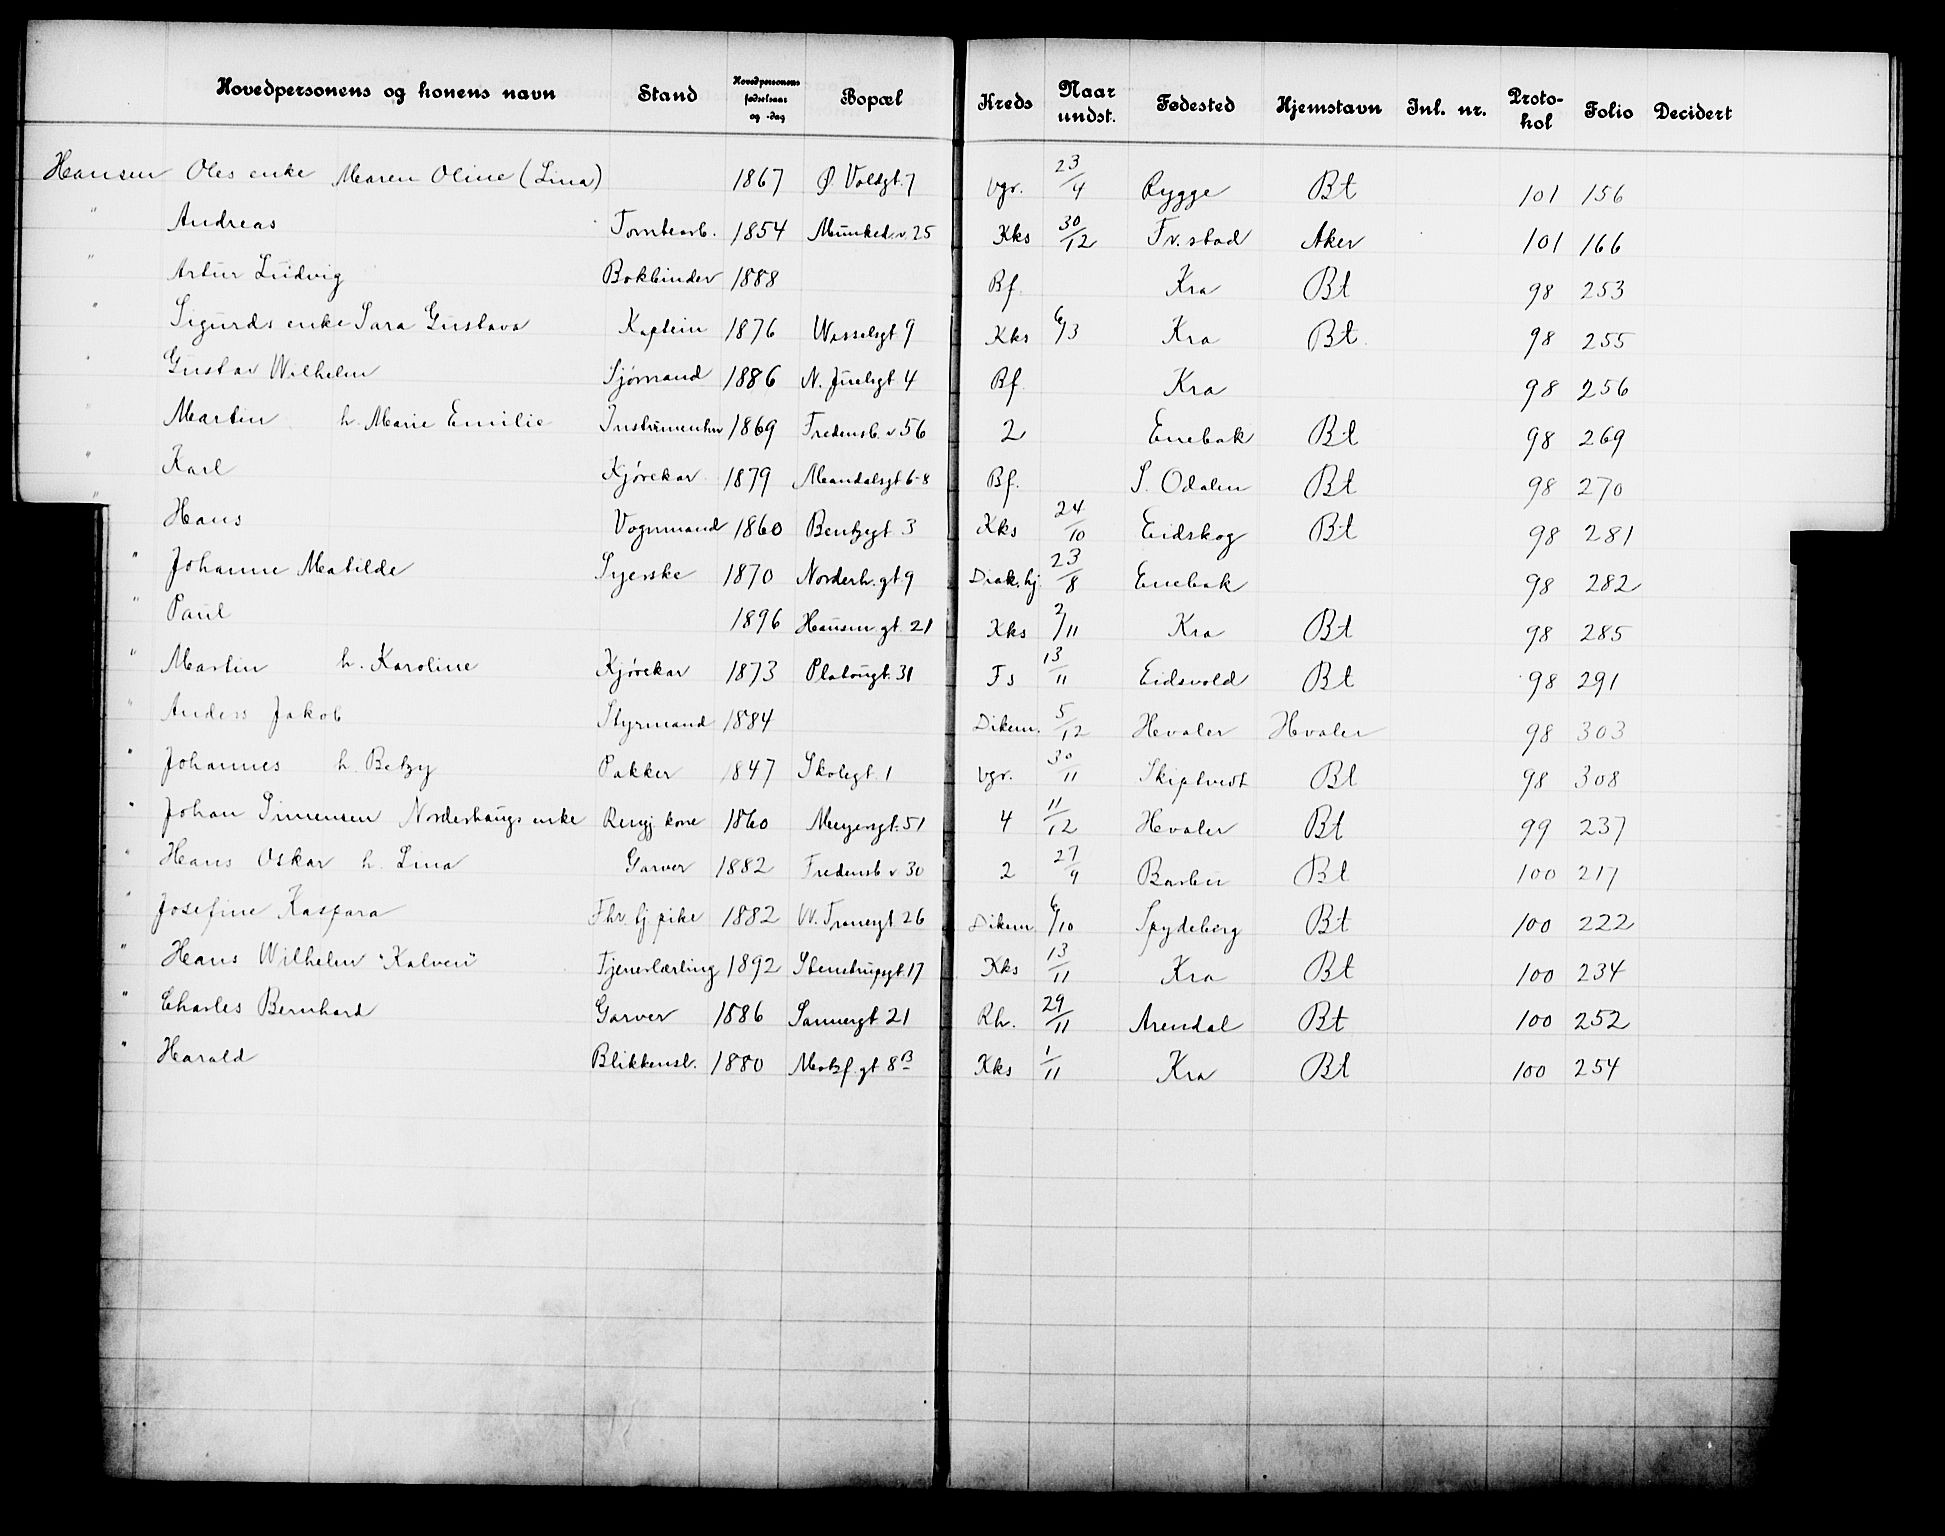 Hovedpersonens og konens navn Stand Hovedpersonens fødselsaar og -dag Bopæl Kreds Naar undst. Fødested Hjemstavn Inl. nr. Proto-kol Folio Decidert
Hansen Oles enke Maren Oline (Lina) 1867 Ø. Voldgt. 7 Vgr. 23/4 Rygge Bt 101 156
" Andreas Tomtearb. 1854 Munked. v. 25 Kks 30/12 Fr.stad Aker 101 166
" Artur Ludvig Bokbinder 1888 Bf. Kra Bt 98 253
" Sigurds enke Sara Gustava Kaptein 1876 Wesselsgt 9 Kks 6/3 Kra Bt. 98 255
" Gustav Wilhelm Sjømand 1886 N. Juelsgt 4 Bf. Kra 98 256
" Martin h. Marie Emilie Instrumentm 1869 Fredensb. v 56 2 Enebak Bt 98 269
" Karl Kjørekar 1879 Mandalsgt 6-8 Bf. S. Odalen Bt 98 270
" Hans Vognmand 1860 Bentzegt 3 Kks 24/10 Eidskog Bt 98 281
" Johanne Matilde Syerske 1870 Norderh. gt 9 Diak. hj. 23/8 Enebak 98 282
" Paul 1896 Hausm. gt. 21 Kks 2/11 Kra Bt 98 285
" Martin h. Karoline Kjørekar 1873 Platougt. 31 Fs 13/11 Eidsvold Bt 98 291
" Anders Jakob Styrmand 1884 Dikem. 5/12 Hvaler Hvaler 98 303
" Johannes h. Betzy Pakker 1847 Skolegt. 1 Vgr. 30/11 Skiptvedt Bt 98 308
" Johan Simensen Norderhaugs enke Rengj kone 1860 Meyersgt. 51 4 11/12 Hvaler Bt 99 237
" Hans Oskar h. Lina Garver 1882 Fredensb v 30 2 27/9 Barbu Bt 100 217
" Josefine Kaspara Fhv. hj pike 1882 W. Tranesgt 26 Dikem 6/10 Spydeberg Bt 100 222
" Hans Wilhelm "Kalven" Tjenerlærling 1892 Stenstrupsgt. 17 Kks 13/11 Kra Bt 100 234
" Charles Bernhard Garver 1886 Sannergt 21 Rh. 29/11 Arendal Bt 100 252
" Harald Blikkensl. 1880 Motzf. gt 8B Kks 1/11 Kra Bt 100 254